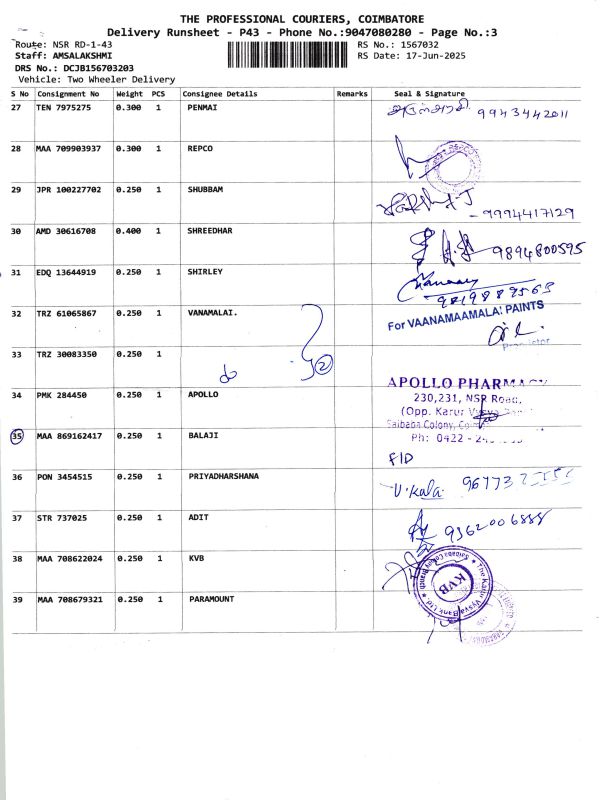 THE PROFESSIONAL COURIERS, COIMBATORE
Delivery Runsheet - P43 - Phone No.:9047080280 - Page No.:3
Route: NSR RD-1-43 RS No.: 1567032
Staff: AMSALAKSHMI RS Date: 17-Jun-2025
DRS No.: DCJB156703203
Vehicle: Two Wheeler Delivery
S No Consignment No Weight PCS Consignee Details Remarks Seal & Signature
27 TEN 7975275 0.300 1 PENMAI 9943442011
28 MAA 709903937 0.300 1 REPCO
29 JPR 100227702 0.250 1 SHUBBAM
- 9994417129
30 AMD 30616708 0.400 1 SHREEDHAR 9894800595
31 EDQ 13644919 0.250 1 SHIRLEY
32 TRZ 61065867 0.250 1 VANAMALAI. For VAANAMAAMALAI PAINTS
33 TRZ 30083350 0.250 1 do 2
34 PMK 284450 0.250 1 APOLLO APOLLO PHARMACY
230,231, NSR Road,
(Opp. Karur Vysya
Saibaba Colony,
Ph: 0422 -
35 MAA 869162417 0.250 1 BALAJI
F1D
36 PON 3454515 0.250 1 PRIYADHARSHANA V.Kala.
37 STR 737025 0.250 1 ADIT 9362006888
38 MAA 708622024 0.250 1 KVB
The Karur Vysya Bank Ltd. Saibaba Colony Branch
KVB
39 MAA 708679321 0.250 1 PARAMOUNT